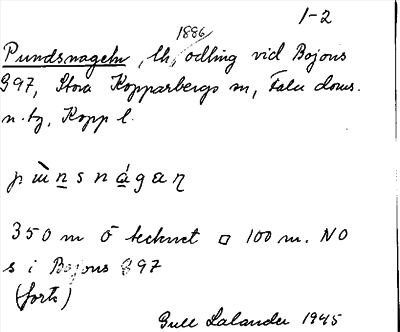 1-2
1886
Pundsnageln, lh, odling vid Bojons
897, Stora Kopparbergs sn, Falu doms.
n. tg, Kopp l.
350 m Ö tecknet □ 100 m. NO
s i Bojons 897
(forts)
Gull Lalander 1945